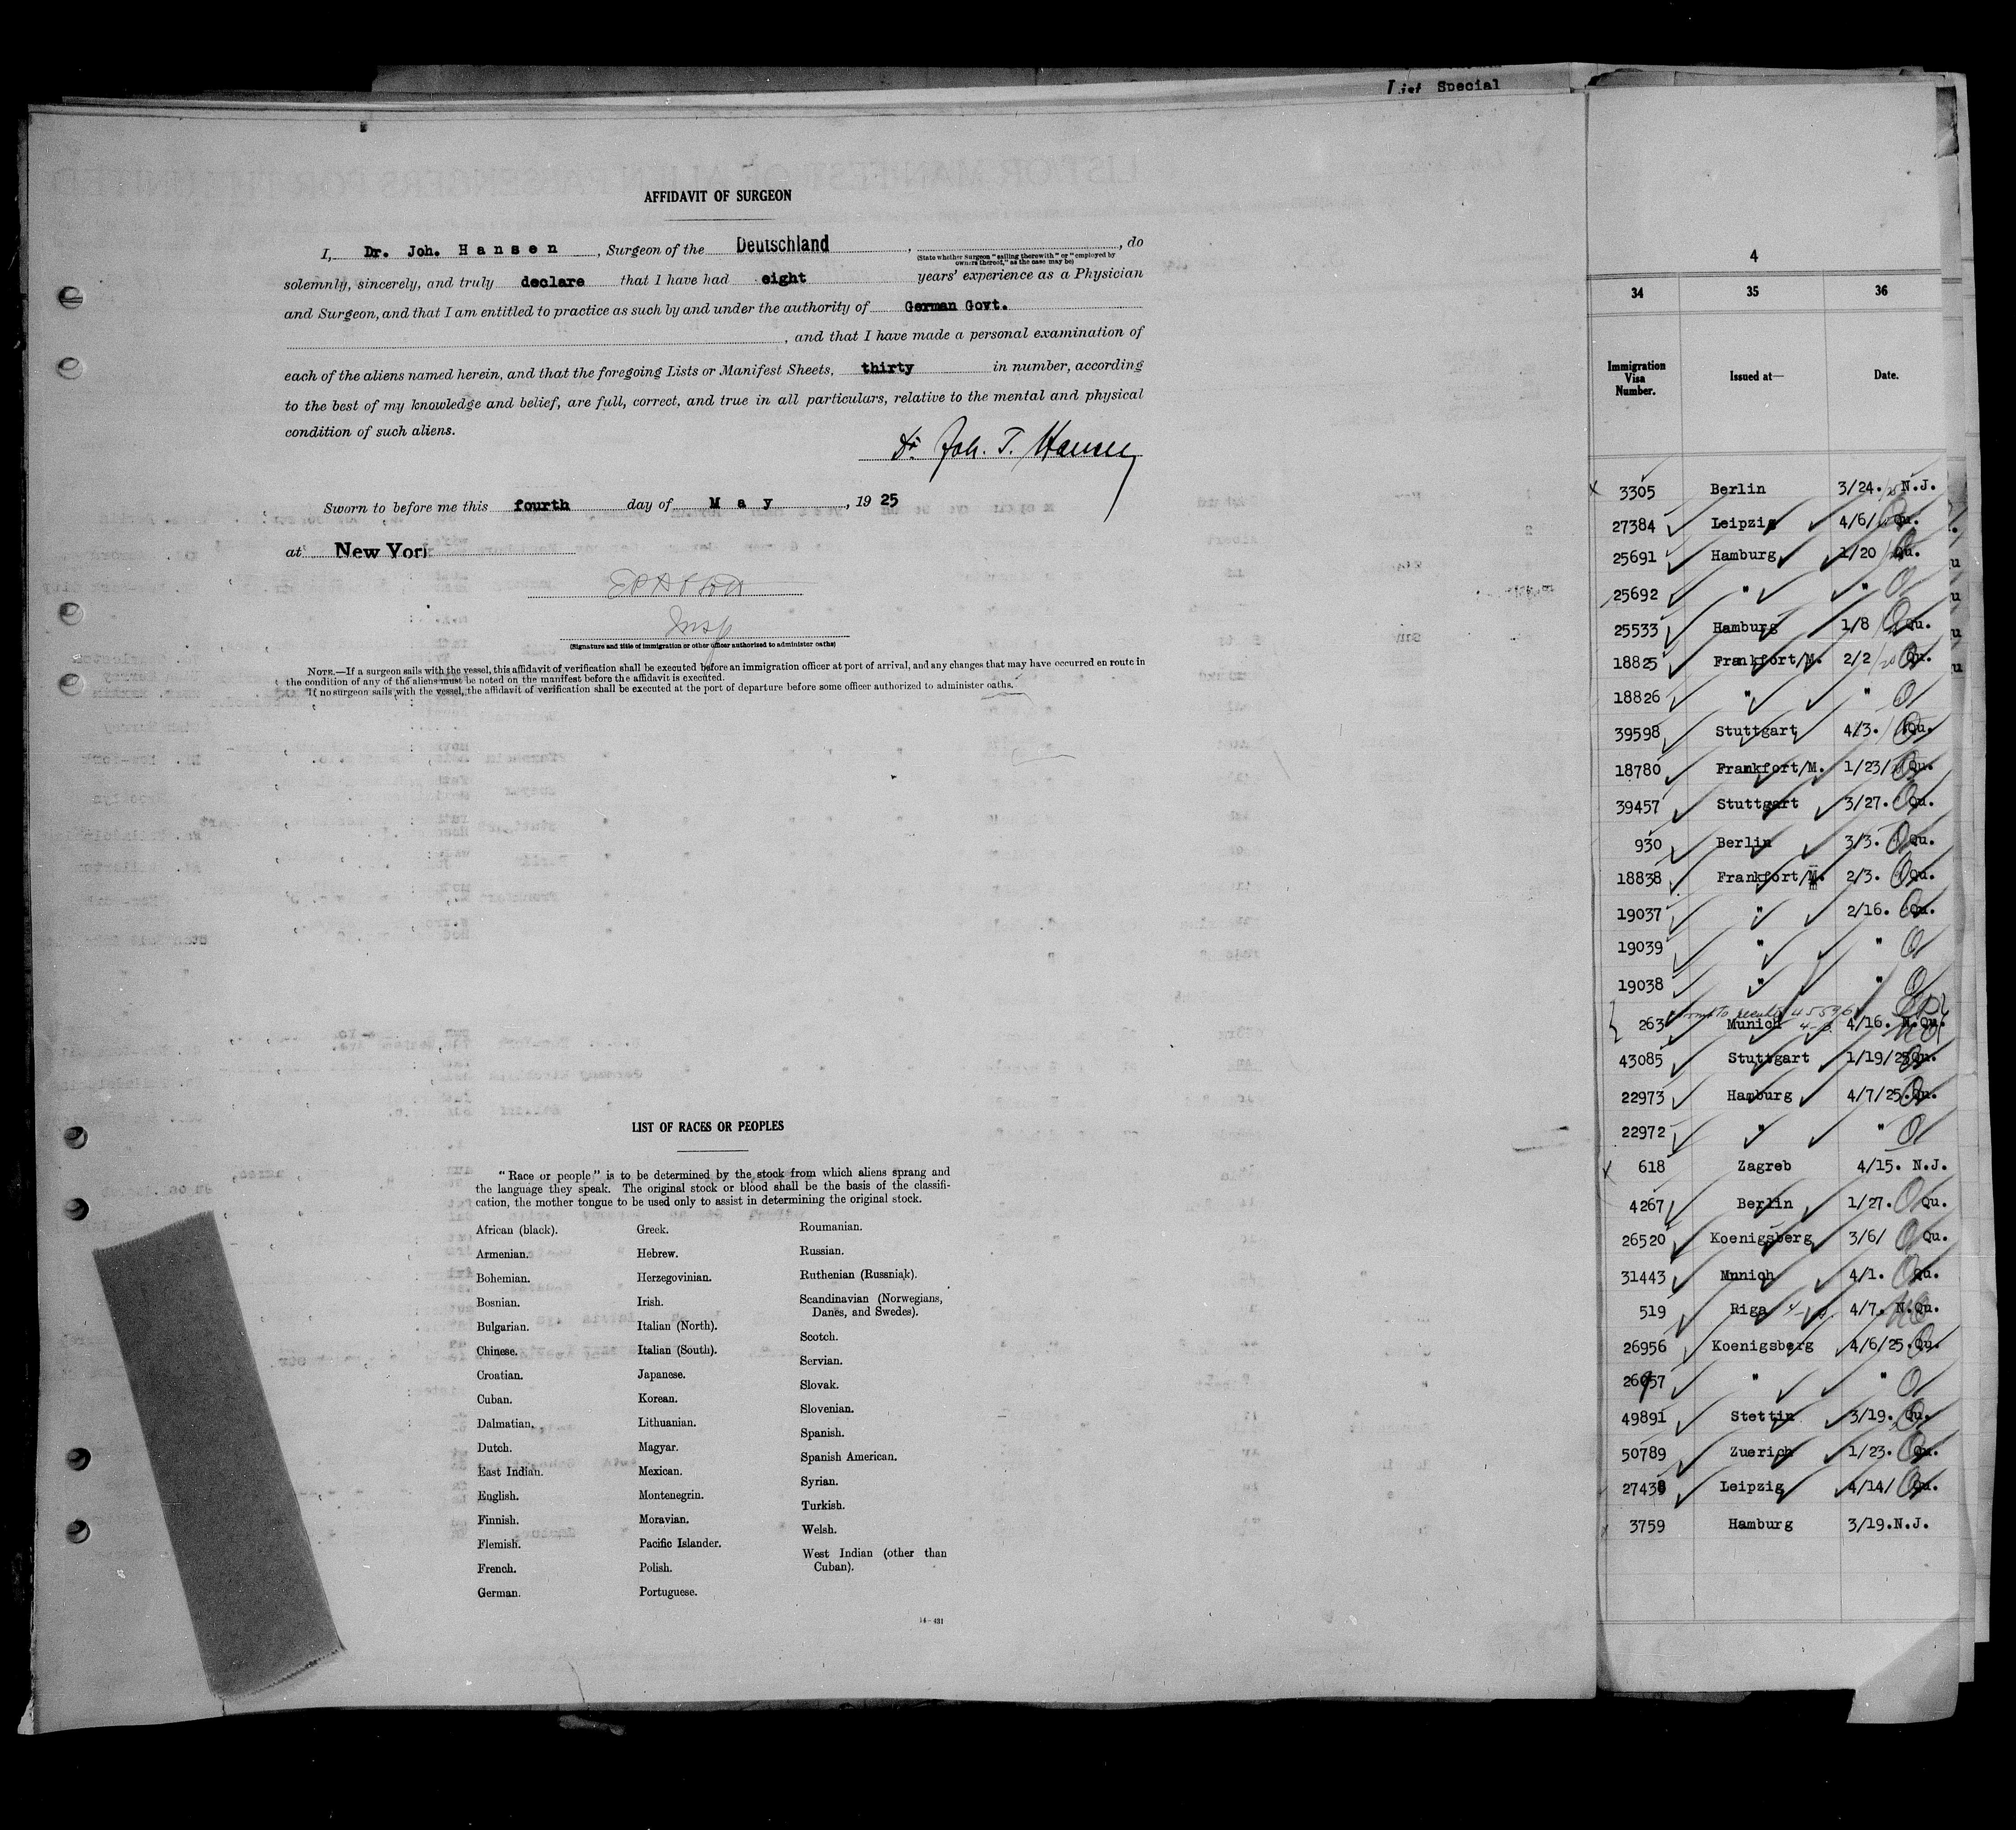 List Special
AFFIDAVIT OF SURGEON
I, Dr. Joh. Hansen, Surgeon of the Deutschland, , do
(State whether Surgeon "sailing therewith" or "employed by
owners thereof," as the case may be)
solemnly, sincerely, and truly declare that I have had eight years' experience as a Physician
and Surgeon, and that I am entitled to practice as such by and under the authority of German Govt.
, and that I have made a personal examination of
each of the aliens named herein, and that the foregoing Lists or Manifest Sheets, thirty in number, according
to the best of my knowledge and belief, are full, correct, and true in all particulars, relative to the mental and physical
condition of such aliens.
Dr. Joh. T. Hansen
Sworn to before me this fourth day of May, 1925
at New York
Insp
(Signature and title of immigration or other officer authorized to administer oaths)
NOTE.—If a surgeon sails with the vessel, this affidavit of verification shall be executed before an immigration officer at port of arrival, and any changes that may have occurred en route in
the condition of any of the aliens must be noted on the manifest before the affidavit is executed.
If no surgeon sails with the vessel, the affidavit of verification shall be executed at the port of departure before some officer authorized to administer oaths.
LIST OF RACES OR PEOPLES
"Race or people" is to be determined by the stock from which aliens sprang and
the language they speak. The original stock or blood shall be the basis of the classifi-
cation, the mother tongue to be used only to assist in determining the original stock.
African (black).
Armenian.
Bohemian.
Bosnian.
Bulgarian.
Chinese.
Croatian.
Cuban.
Dalmatian.
Dutch.
East Indian.
English.
Finnish.
Flemish.
French.
German.
Greek.
Hebrew.
Herzegovinian.
Irish.
Italian (North).
Italian (South).
Japanese.
Korean.
Lithuanian.
Magyar.
Mexican.
Montenegrin.
Moravian.
Pacific Islander.
Polish.
Portuguese.
Roumanian.
Russian.
Ruthenian (Russniak).
Scandinavian (Norwegians,
Danes, and Swedes).
Scotch.
Servian.
Slovak.
Slovenian.
Spanish.
Spanish American.
Syrian.
Turkish.
Welsh.
West Indian (other than
Cuban).
14-431
4
34 35 36
Immigration
Visa
Number.
Issued at—
Date.
3305 Berlin 3/24. N.J.
27384 Leipzig 4/6/ Qu.
25691 Hamburg 1/20 Qu.
25692 " "
25533 Hamburg 1/8 Qu.
18825 Frankfort/M. 2/2 Qu.
18826 " "
39598 Stuttgart 4/3. Qu.
18780 Frankfort/M. 1/23/ Qu.
39457 Stuttgart 3/27. Qu.
930 Berlin 3/3. Qu.
18838 Frankfort/M. 2/3. Qu.
19037 " 2/16. Qu.
19039 " "
19038 " "
263 Munich 4/16. N.Qu.
43085 Stuttgart 1/19/25 Qu.
22973 Hamburg 4/7/25. Qu.
22972 " "
618 Zagreb 4/15. N.J.
4267 Berlin 1/27. Qu.
26520 Koenigsberg 3/6/ Qu.
31443 Munich 4/1. Qu.
519 Riga 4/7. N.Qu.
26956 Koenigsberg 4/6/25. Qu.
26957 " "
49891 Stettin 3/19. Qu.
50789 Zuerich 1/23. Qu.
27438 Leipzig 4/14/ Qu.
3759 Hamburg 3/19. N.J.